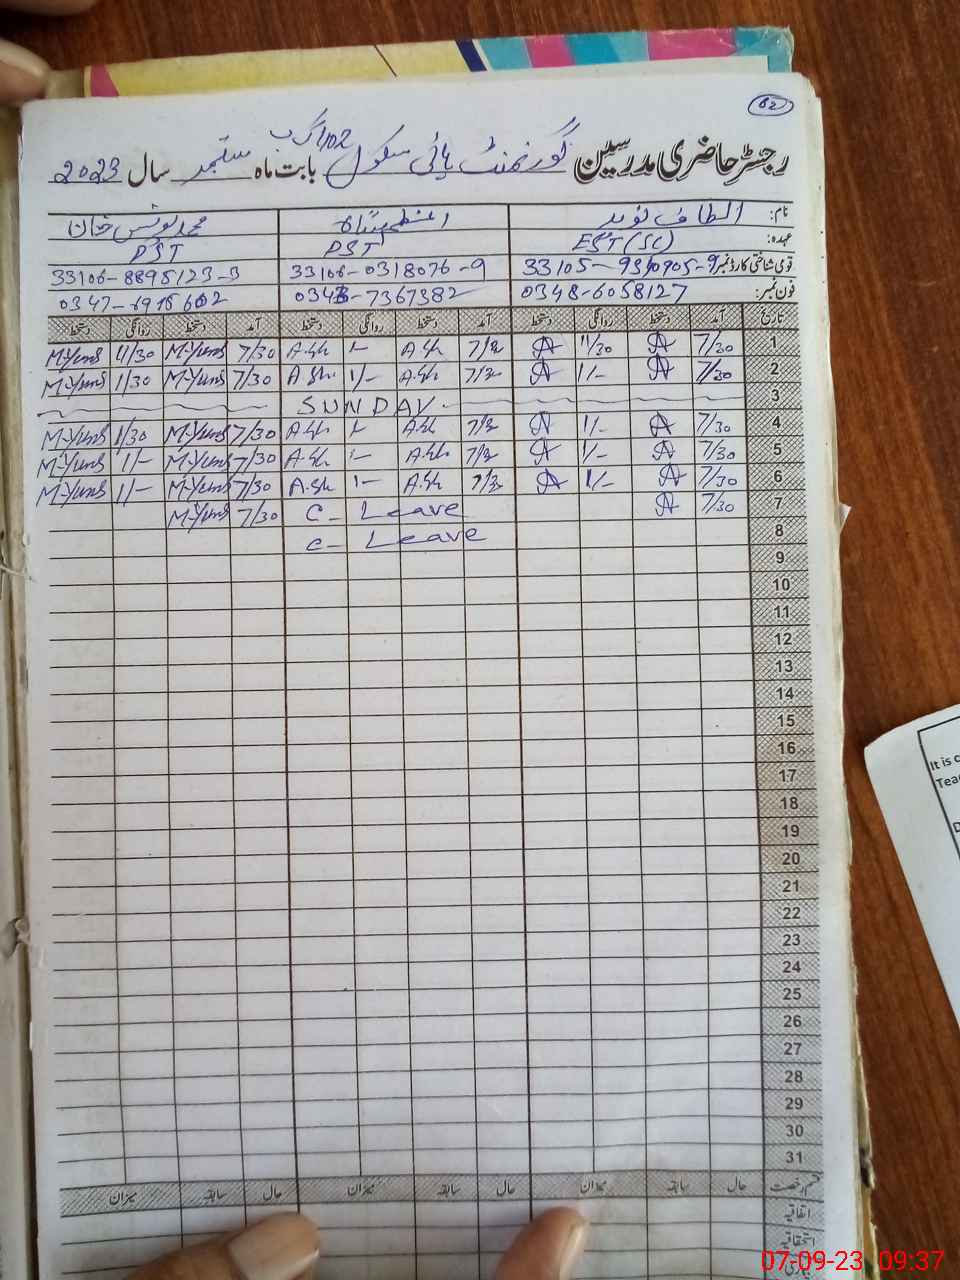 62
رجسٹر حاضری مدرسین گورنمنٹ ہائی سکول 102 گ ب بابت ماہ ستمبر سال 2023
نام: الطاف نوید محمد یونس خان
عہدہ: EST (SC) PST PST
قومی شناختی کارڈ نمبر 33106-0318076-9 33106-8895123-3
فون نمبر: 0348-6058127
تاریخ آمد دستخط روانگی دستخط آمد دستخط روانگی دستخط آمد دستخط روانگی دستخط
1 7/30 11/30 A.Sh 1- A.Sh 7/30 M-Yunus 11/30 M-Yunus
2 7/30 1/- A.Sh 1/- A.Sh 7/30 M-Yunus 1/30 M-Yunus
3 SUNDAY
4 7/30 1/- A.Sh A.Sh 7/30 M-Yunus 1/30 M-Yunus
5 7/30 1/- A.Sh 1- A.Sh 7/30 M-Yunus 1/- M-Yunus
6 7/30 1/- A.Sh 1- A.Sh 7/30 M-Yunus 1/- M-Yunus
7 7/30 C- Leave 7/30 M-Yunus
8 C- Leave
9
10
11
12
13
14
15
16
17
18
19
20
21
22
23
24
25
26
27
28
29
30
31
قسم رخصت حال سابقہ میزان حال سابقہ میزان حال سابقہ میزان
اتفاقیہ
استحقاقیہ
It is
Tea
07-09-23 09:37